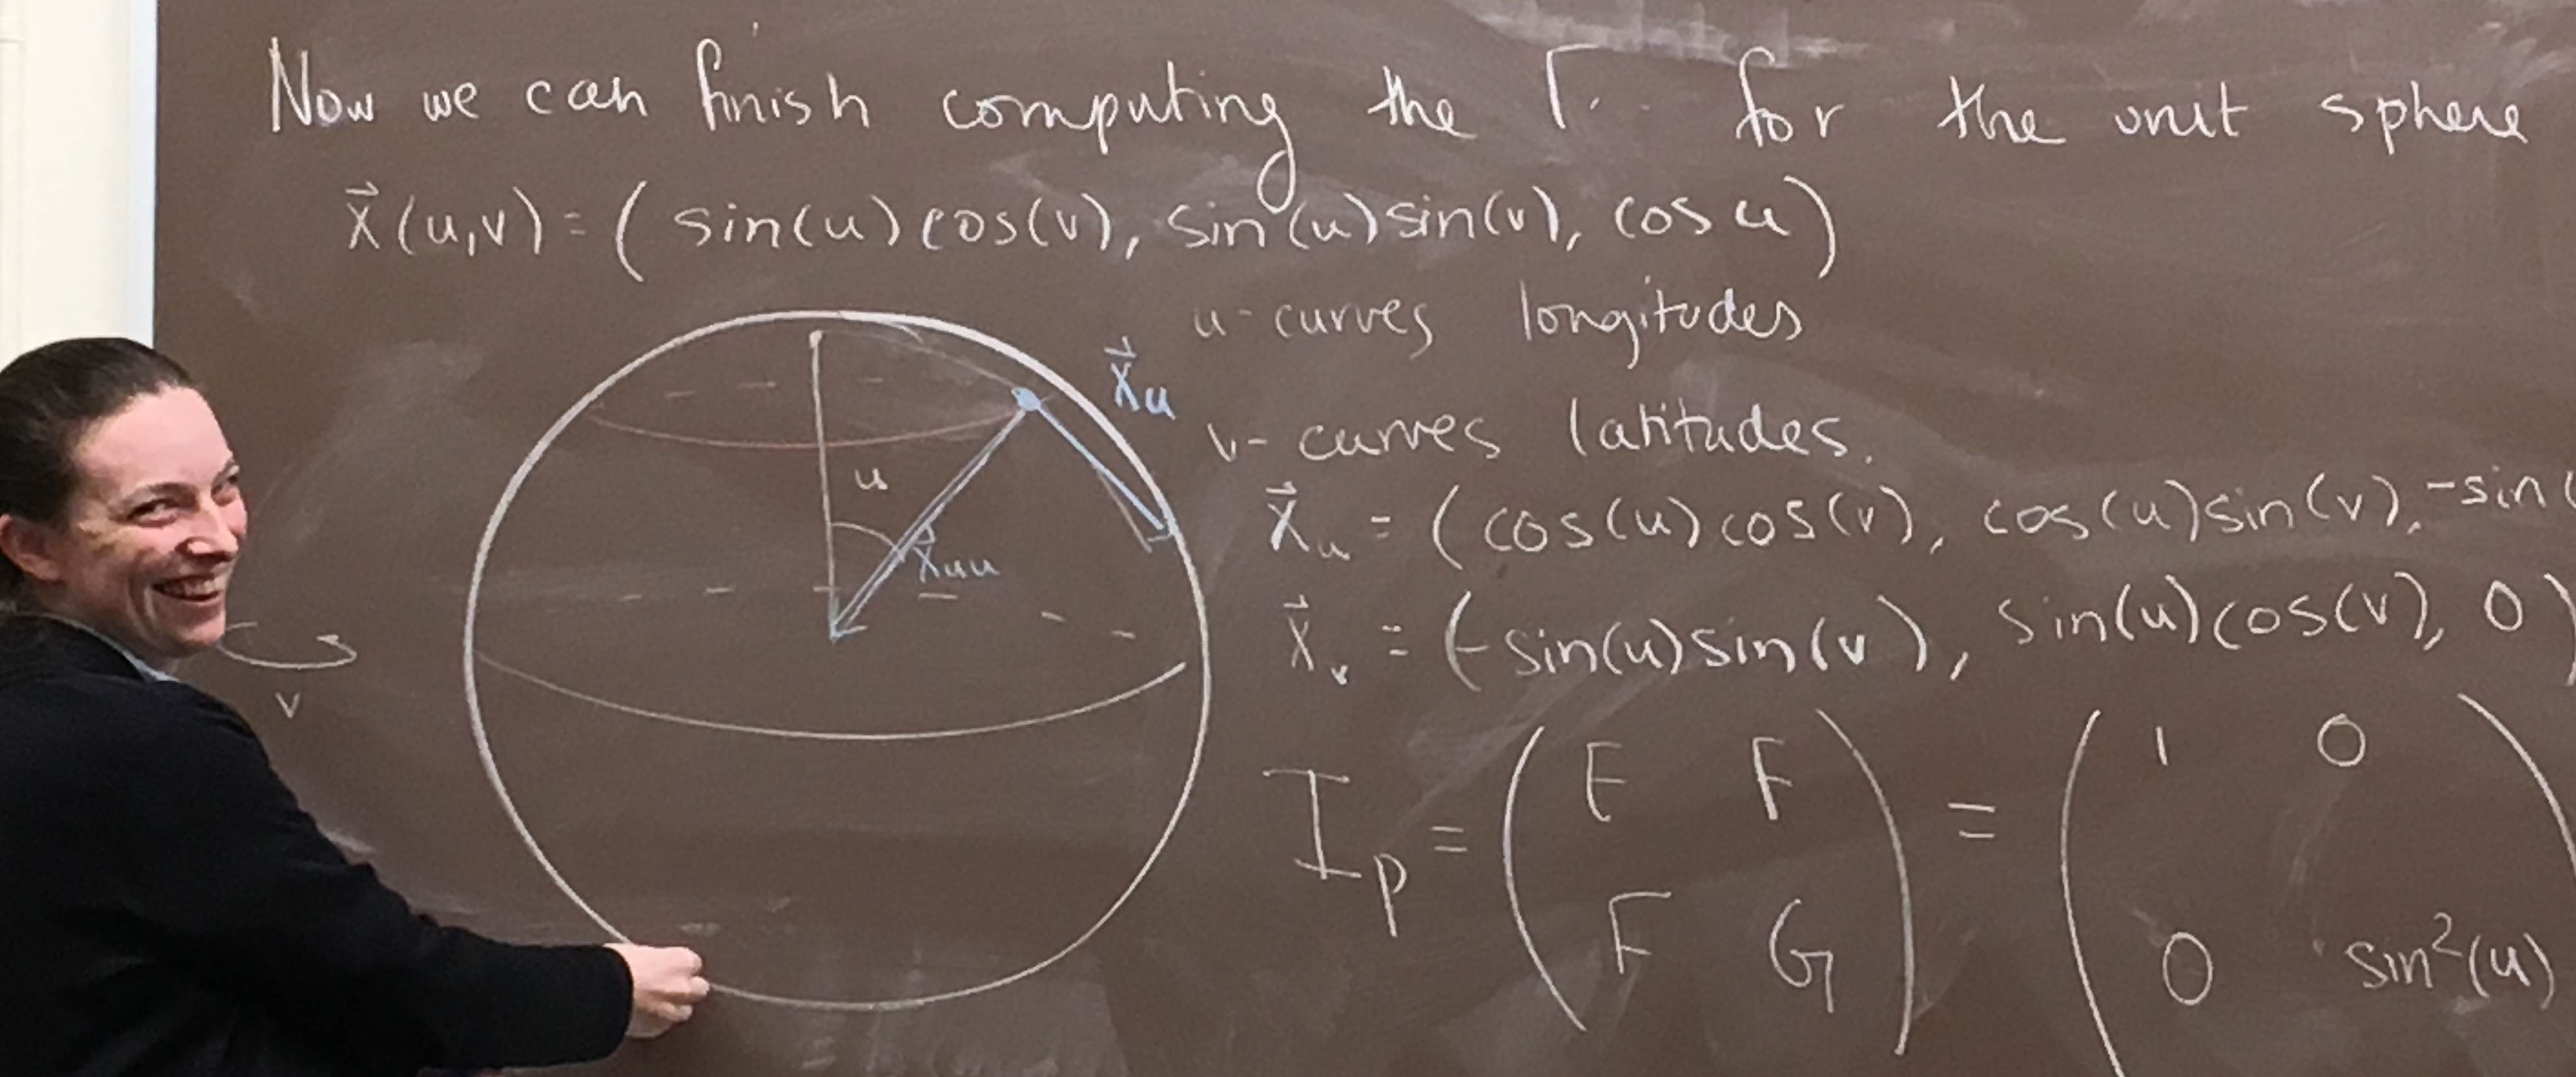 Now we can finish computing the Γ·· for the unit sphere
x⃗(u,v) = ( sin(u)cos(v), sin(u)sin(v), cos u )
u-curves longitudes
x⃗u
v-curves latitudes.
u
x⃗u = ( cos(u)cos(v), cos(u)sin(v), -sin(
x⃗uu
x⃗v = (-sin(u)sin(v), sin(u)cos(v), 0)
v
Ip = ( E F = ( 1 0
F G ) 0 sin²(u)